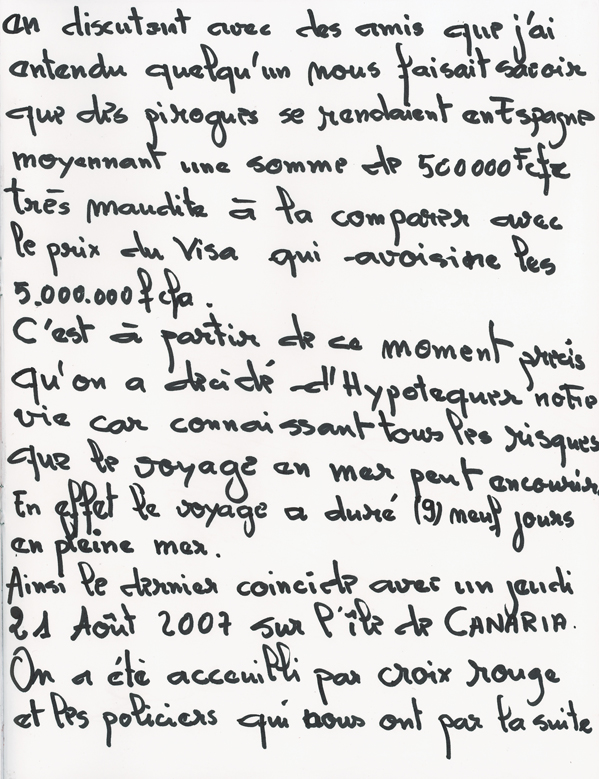 en discutant avec des amis que j'ai
entendu quelqu'un nous faisait savoir
que des pirogues se rendaient en Espagne
moyennant une somme de 500000 Fcfa
très maudite à la comparer avec
le prix du Visa qui avoisine les
5.000.000 f cfa.
C'est à partir de ce moment précis
qu'on a décidé d'Hypotequer notre
vie car connaissant tous les risques
que le voyage en mer peut encourir.
En effet le voyage a duré (9) neuf jours
en pleine mer.
Ainsi le dernier coincide avec un jeudi
21 Août 2007 sur l'île de CANARIA.
On a été accueilli par croix rouge
et les policiers qui nous ont par la suite